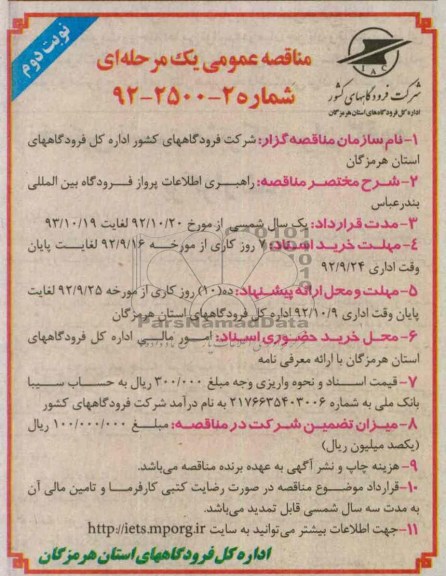 نوبت دوم
IAC
شرکت فرودگاههای کشور
اداره کل فرودگاههای استان هرمزگان
مناقصه عمومی یک مرحله‌ای
شماره ۲-۲۵۰۰-۹۲
۱-نام سازمان مناقصه گزار: شرکت فرودگاههای کشور اداره کل فرودگاههای
استان هرمزگان
۲-شرح مختصر مناقصه: راهبری اطلاعات پرواز فرودگاه بین المللی
بندرعباس
۳-مدت قرارداد: یک سال شمسی از مورخ ۹۲/۱۰/۲۰ لغایت ۹۳/۱۰/۱۹
۴-مهلت خرید اسناد: ۷ روز کاری از مورخه ۹۲/۹/۱۶ لغایت پایان
وقت اداری ۹۲/۹/۲۴
۵-مهلت و محل ارائه پیشنهاد: ده(۱۰) روز کاری از مورخه ۹۲/۹/۲۵ لغایت
پایان وقت اداری ۹۲/۱۰/۹ اداره کل فرودگاههای استان هرمزگان
ParsNamadData
۶-محل خرید حضوری اسناد: امور مالی اداره کل فرودگاههای
استان هرمزگان با ارائه معرفی نامه
۷-قیمت اسناد و نحوه واریزی وجه مبلغ ۳۰۰/۰۰۰ ریال به حساب سیبا
بانک ملی به شماره ۲۱۷۶۶۳۵۴۰۳۰۰۶ به نام درآمد شرکت فرودگاههای کشور
۸-میزان تضمین شرکت در مناقصه: مبلغ ۱۰۰/۰۰۰/۰۰۰ ریال
(یکصد میلیون ریال)
۹-هزینه چاپ و نشر آگهی به عهده برنده مناقصه می‌باشد.
۱۰-قرارداد موضوع مناقصه در صورت رضایت کتبی کارفرما و تامین مالی آن
به مدت سه سال شمسی قابل تمدید می‌باشد.
۱۱-جهت اطلاعات بیشتر می‌توانید به سایت http://iets.mporg.ir
اداره کل فرودگاههای استان هرمزگان